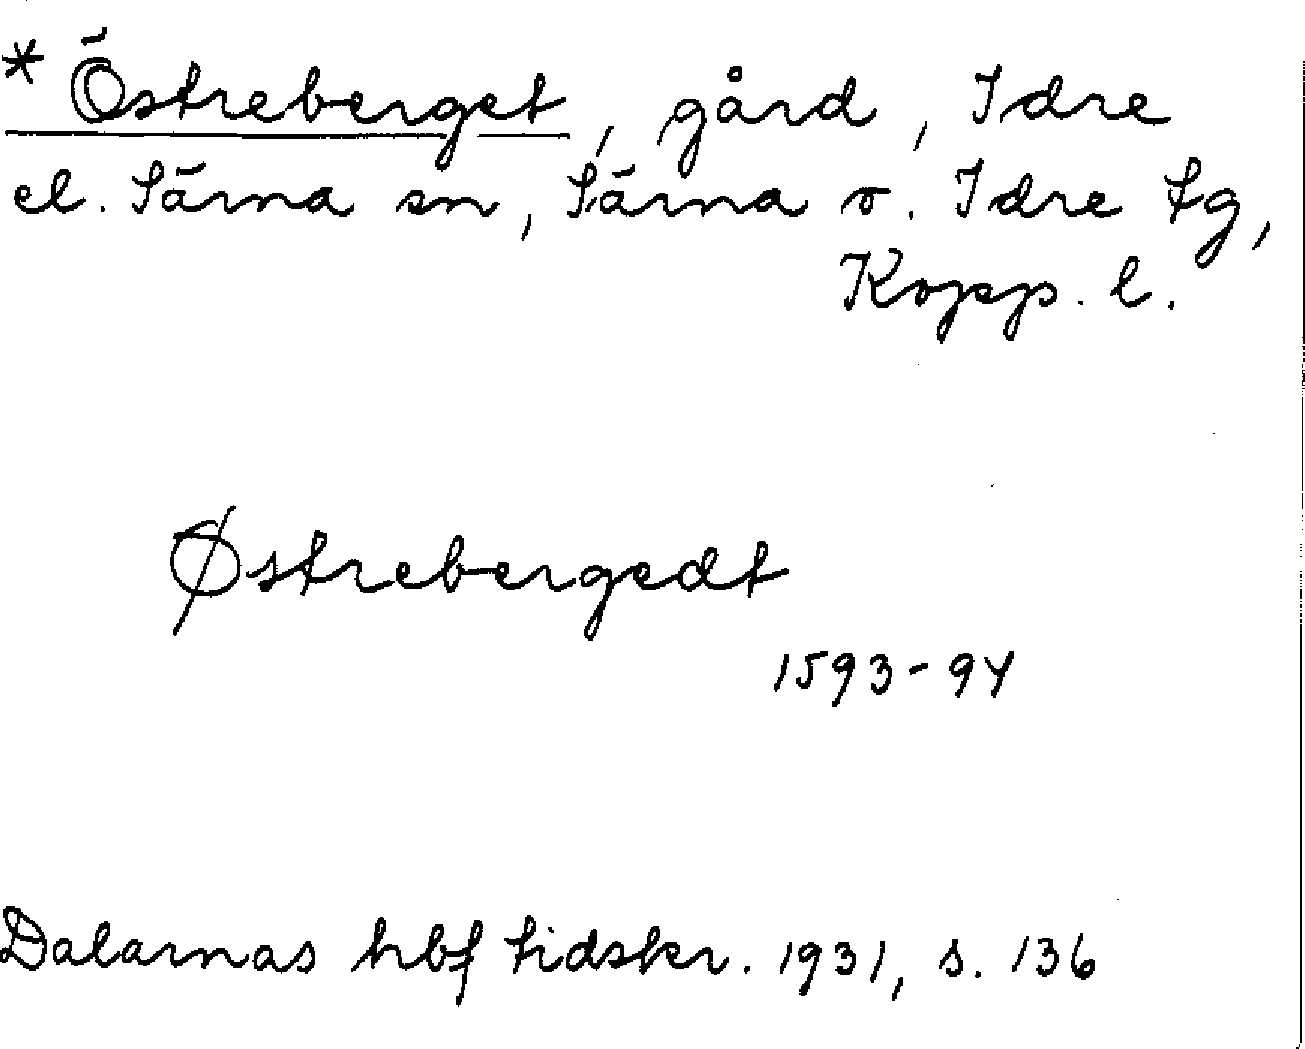 * Östreberget, gård, Idre
el. Särna sn, Särna o. Idre tg,
Kopp. l.
Østrebergedt
1593-94
Dalarnas hbf tidskr. 1931, s. 136